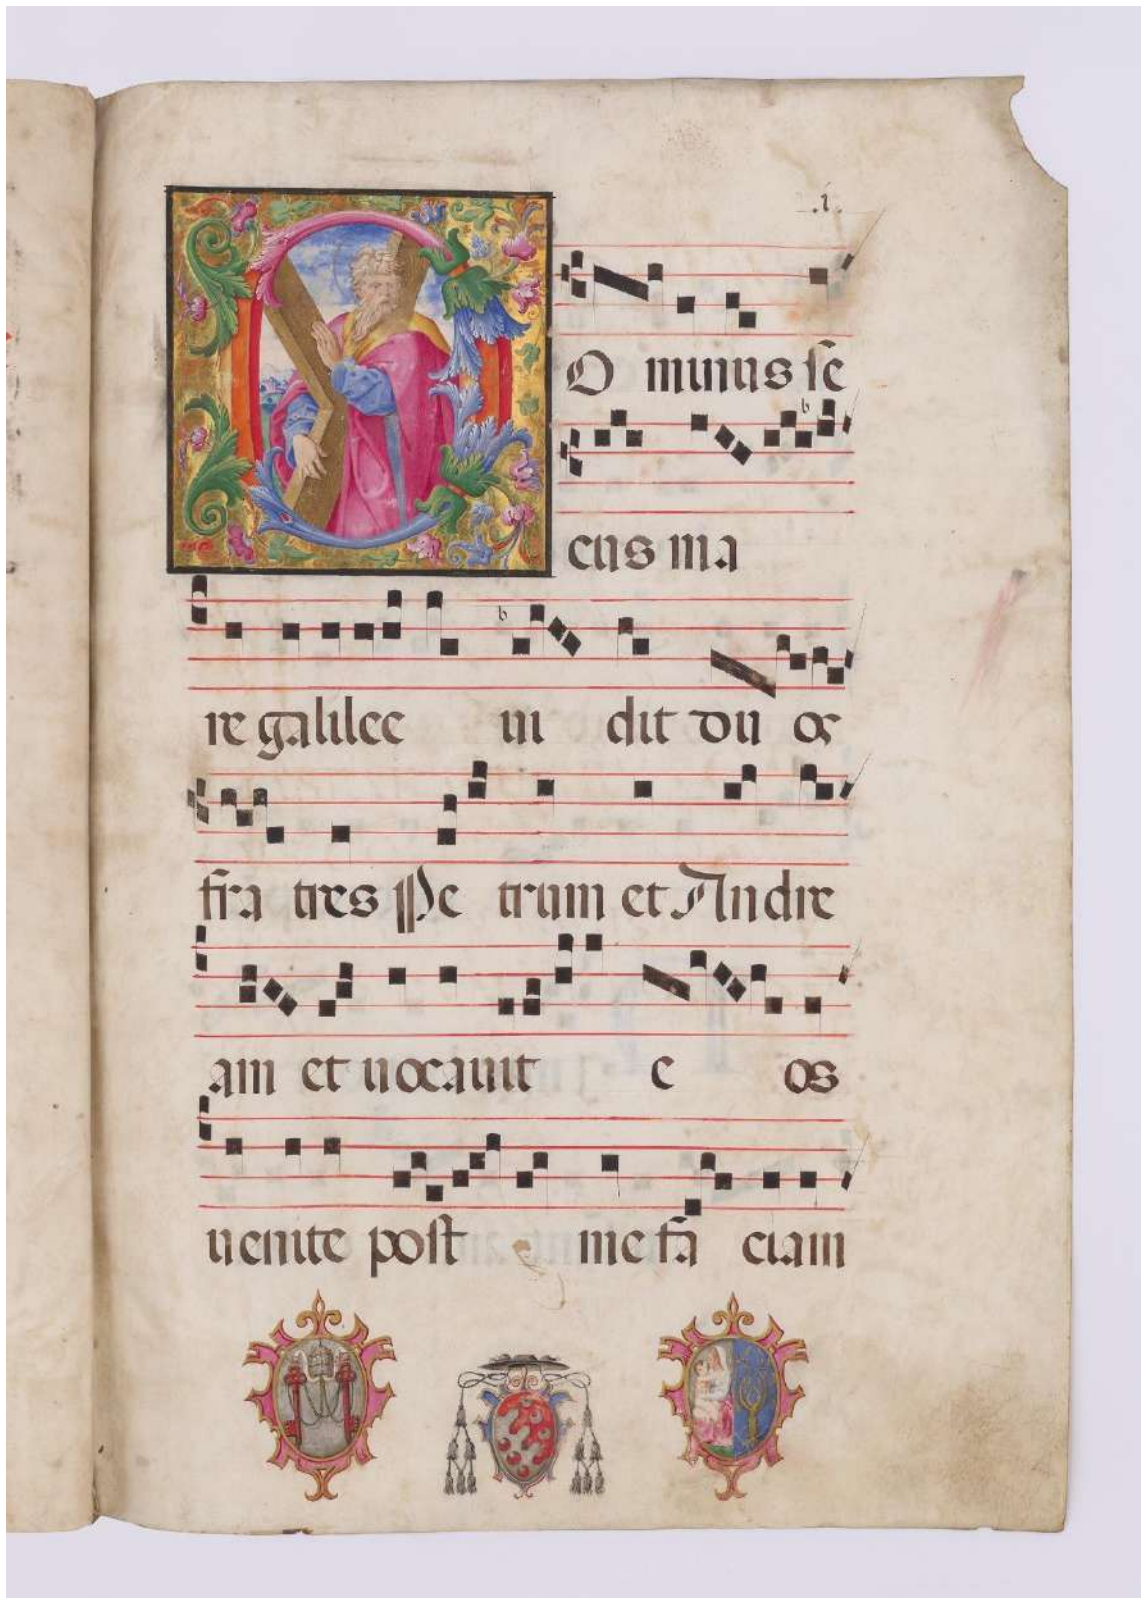 .1.
DOminus se
cus ma
re galilee ui dit du os
fra tres Pe trum et Andre
am et uocauit e os
uenite post me fa ciam